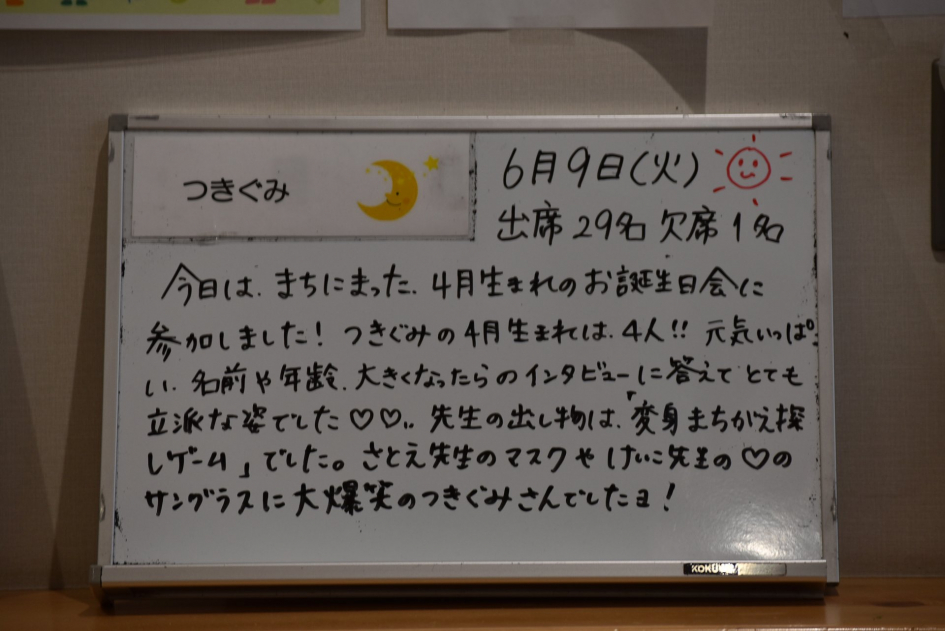 つきぐみ
6月9日(火)
出席29名 欠席1名
今日は、まちにまった、4月生まれのお誕生日会に
参加しました! つきぐみの4月生まれは、4人!! 元気いっぱ
い、名前や年齢、大きくなったらのインタビューに答えてとても
立派な姿でした♡♡!! 先生の出し物は、「変身まちがえ探
しゲーム」でした。さとえ先生のマスクやけいこ先生の♡の
サングラスに大爆笑のつきぐみさんでしたヨ!
KOKUYO